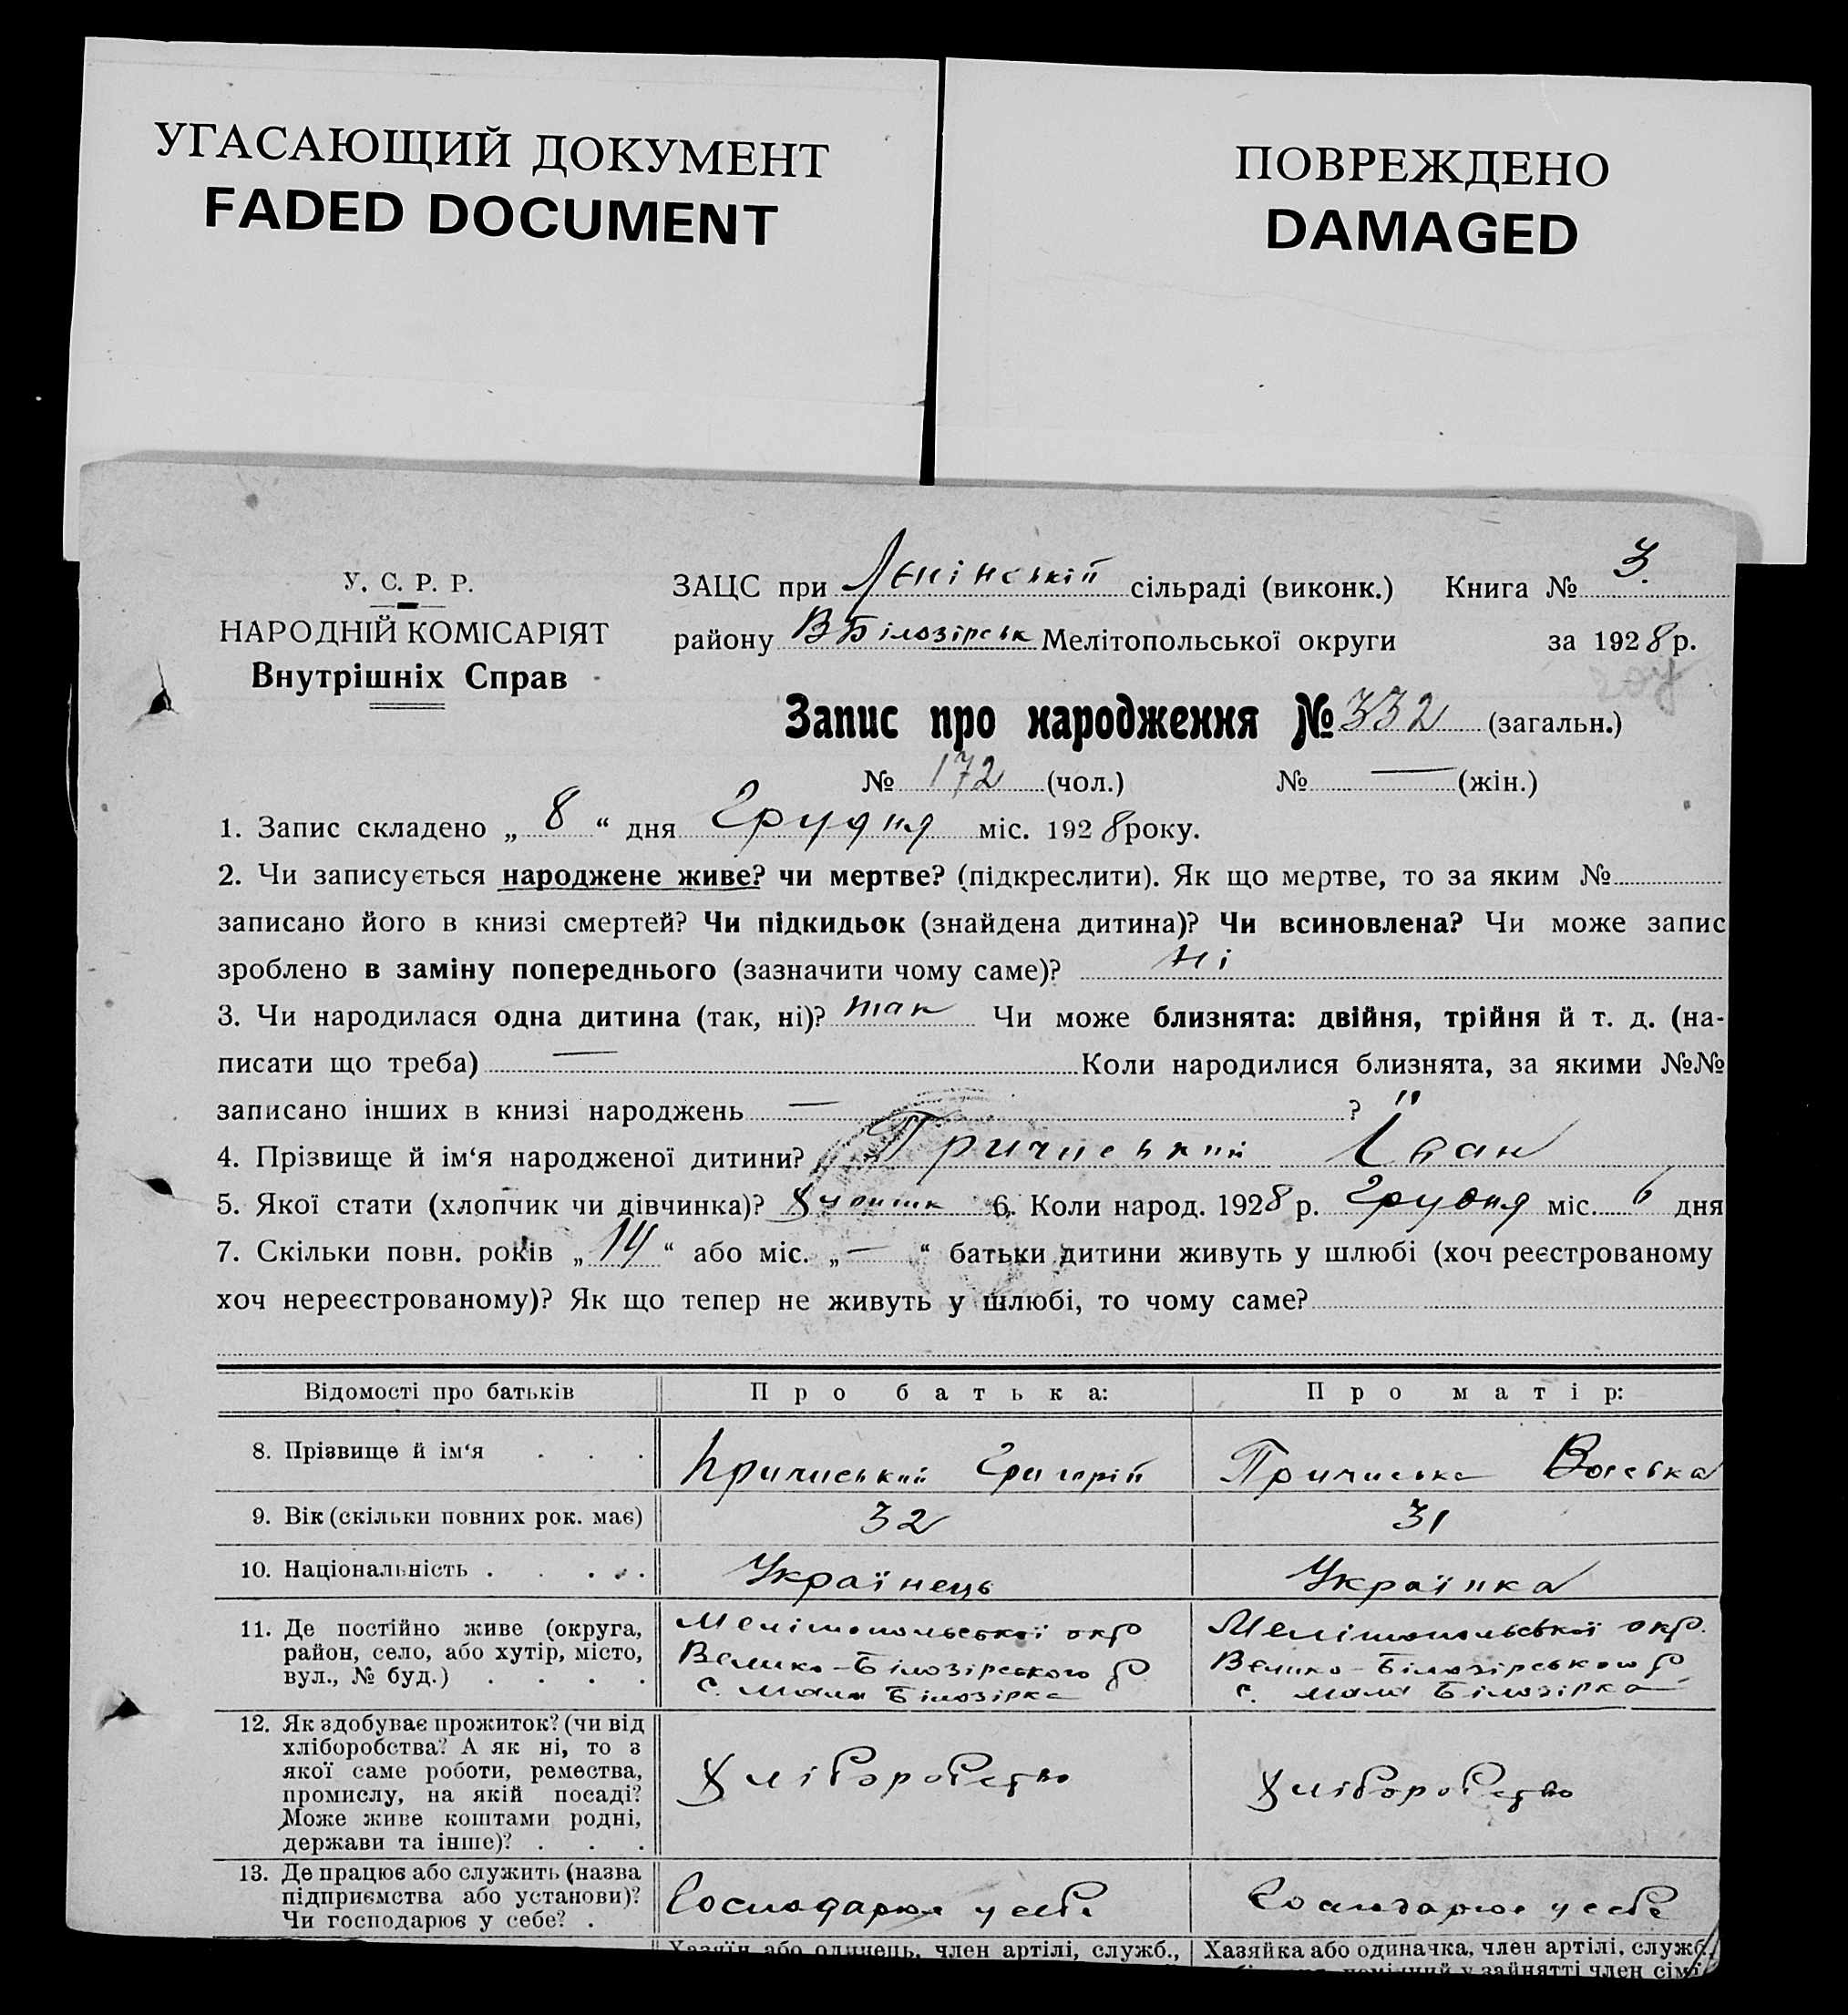 УГАСАЮЩИЙ ДОКУМЕНТ
FADED DOCUMENT
ПОВРЕЖДЕНО
DAMAGED
У. С. Р. Р.
НАРОДНІЙ КОМІСАРІЯТ
Внутрішніх Справ
ЗАЦС при Ленінській сільраді (виконк.) Книга № 3.
району ВБілозірськ Мелітопольської округи за 1928 р.
Запис про народження № 332 (загальн.)
№ 172 (чол.) № — (жін.)
1. Запис складено „ 8 “ дня Грудня міс. 1928 року.
2. Чи записується народжене живе? чи мертве? (підкреслити). Як що мертве, то за яким №
записано його в книзі смертей? Чи підкидьок (знайдена дитина)? Чи всиновлена? Чи може запис
зроблено в заміну попереднього (зазначити чому саме)? Ні
3. Чи народилася одна дитина (так, ні)? так Чи може близнята: двійня, трійня й т. д. (на-
писати що треба) — Коли народилися близнята, за якими №№
записано інших в книзі народжень — ?
4. Прізвище й ім'я народженої дитини? Причиський Їван
5. Якої стати (хлопчик чи дівчинка)? Хлопчик 6. Коли народ. 1928 р. Грудня міс. 6 дня
7. Скільки повн. років „ 14 “ або міс. „ — “ батьки дитини живуть у шлюбі (хоч реєстрованому
хоч нереєстрованому)? Як що тепер не живуть у шлюбі, то чому саме?
Відомості про батьків Про батька: Про матір:
8. Прізвище й ім'я . . . Причиський Григорій Причиська
9. Вік (скільки повних рок. має) 32 31
10. Національність . . . . . Українець Українка
11. Де постійно живе (округа,
район, село, або хутір, місто,
вул., № буд.) . . . .
Мелітопольської окр
Велико-Білозірського р
с. Мала Білозірка
Мелітопольської окр.
Велико-Білозірського р
с. Мала Білозірка
12. Як здобуває прожиток? (чи від
хліборобства? А як ні, то з
якої саме роботи, ремества,
промислу, на якій посаді?
Може живе коштами родні,
держави та інше)? . . .
Хліборобство
Хліборобство
13. Де працює або служить (назва
підприємства або установи)?
Чи господарює у себе? .
Господарює у себе
Господарює у себе
Хазяїн або одинець, член артілі, служб., Хазяйка або одиначка, член артілі, служб.
у зайнятті член сімї